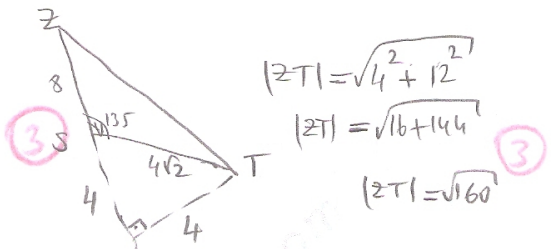 Z
8
135
S
3
4√2
T
4
4
|ZT| = √4² + 12²
|ZT| = √16 + 144
3
|ZT| = √160